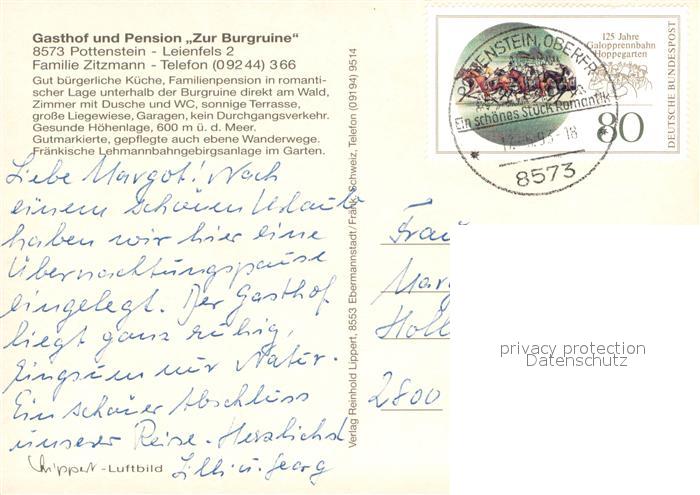 Gasthof und Pension „Zur Burgruine"
8573 Pottenstein - Leienfels 2
Familie Zitzmann - Telefon (0 92 44) 3 66
Gut bürgerliche Küche, Familienpension in romanti-
scher Lage unterhalb der Burgruine direkt am Wald,
Zimmer mit Dusche und WC, sonnige Terrasse,
große Liegewiese, Garagen, kein Durchgangsverkehr.
Gesunde Höhenlage, 600 m ü. d. Meer.
Gutmarkierte, gepflegte auch ebene Wanderwege.
Fränkische Lehmannbahngebirgsanlage im Garten.
Liebe Margot! Nach
einem schönen Urlaub
haben wir hier eine
Übernachtungspause
eingelegt. Der Gasthof
liegt ganz ruhig,
Ringsum nur Natur.
Ein schöner Abschluss
unserer Reise. Herzlichst
Lilli u. Georg
Lippert-Luftbild
Verlag Reinhold Lippert, 8553 Ebermannstadt/Fränk. Schweiz, Telefon (0 91 94) 95 14
125 Jahre
Galopprennbahn
Hoppegarten
80
DEUTSCHE BUNDESPOST
POTTENSTEIN, OBERFR
Ein schönes Stück Romantik
-18
8573
Frau
Mar
Holl
2800
privacy protection
Datenschutz